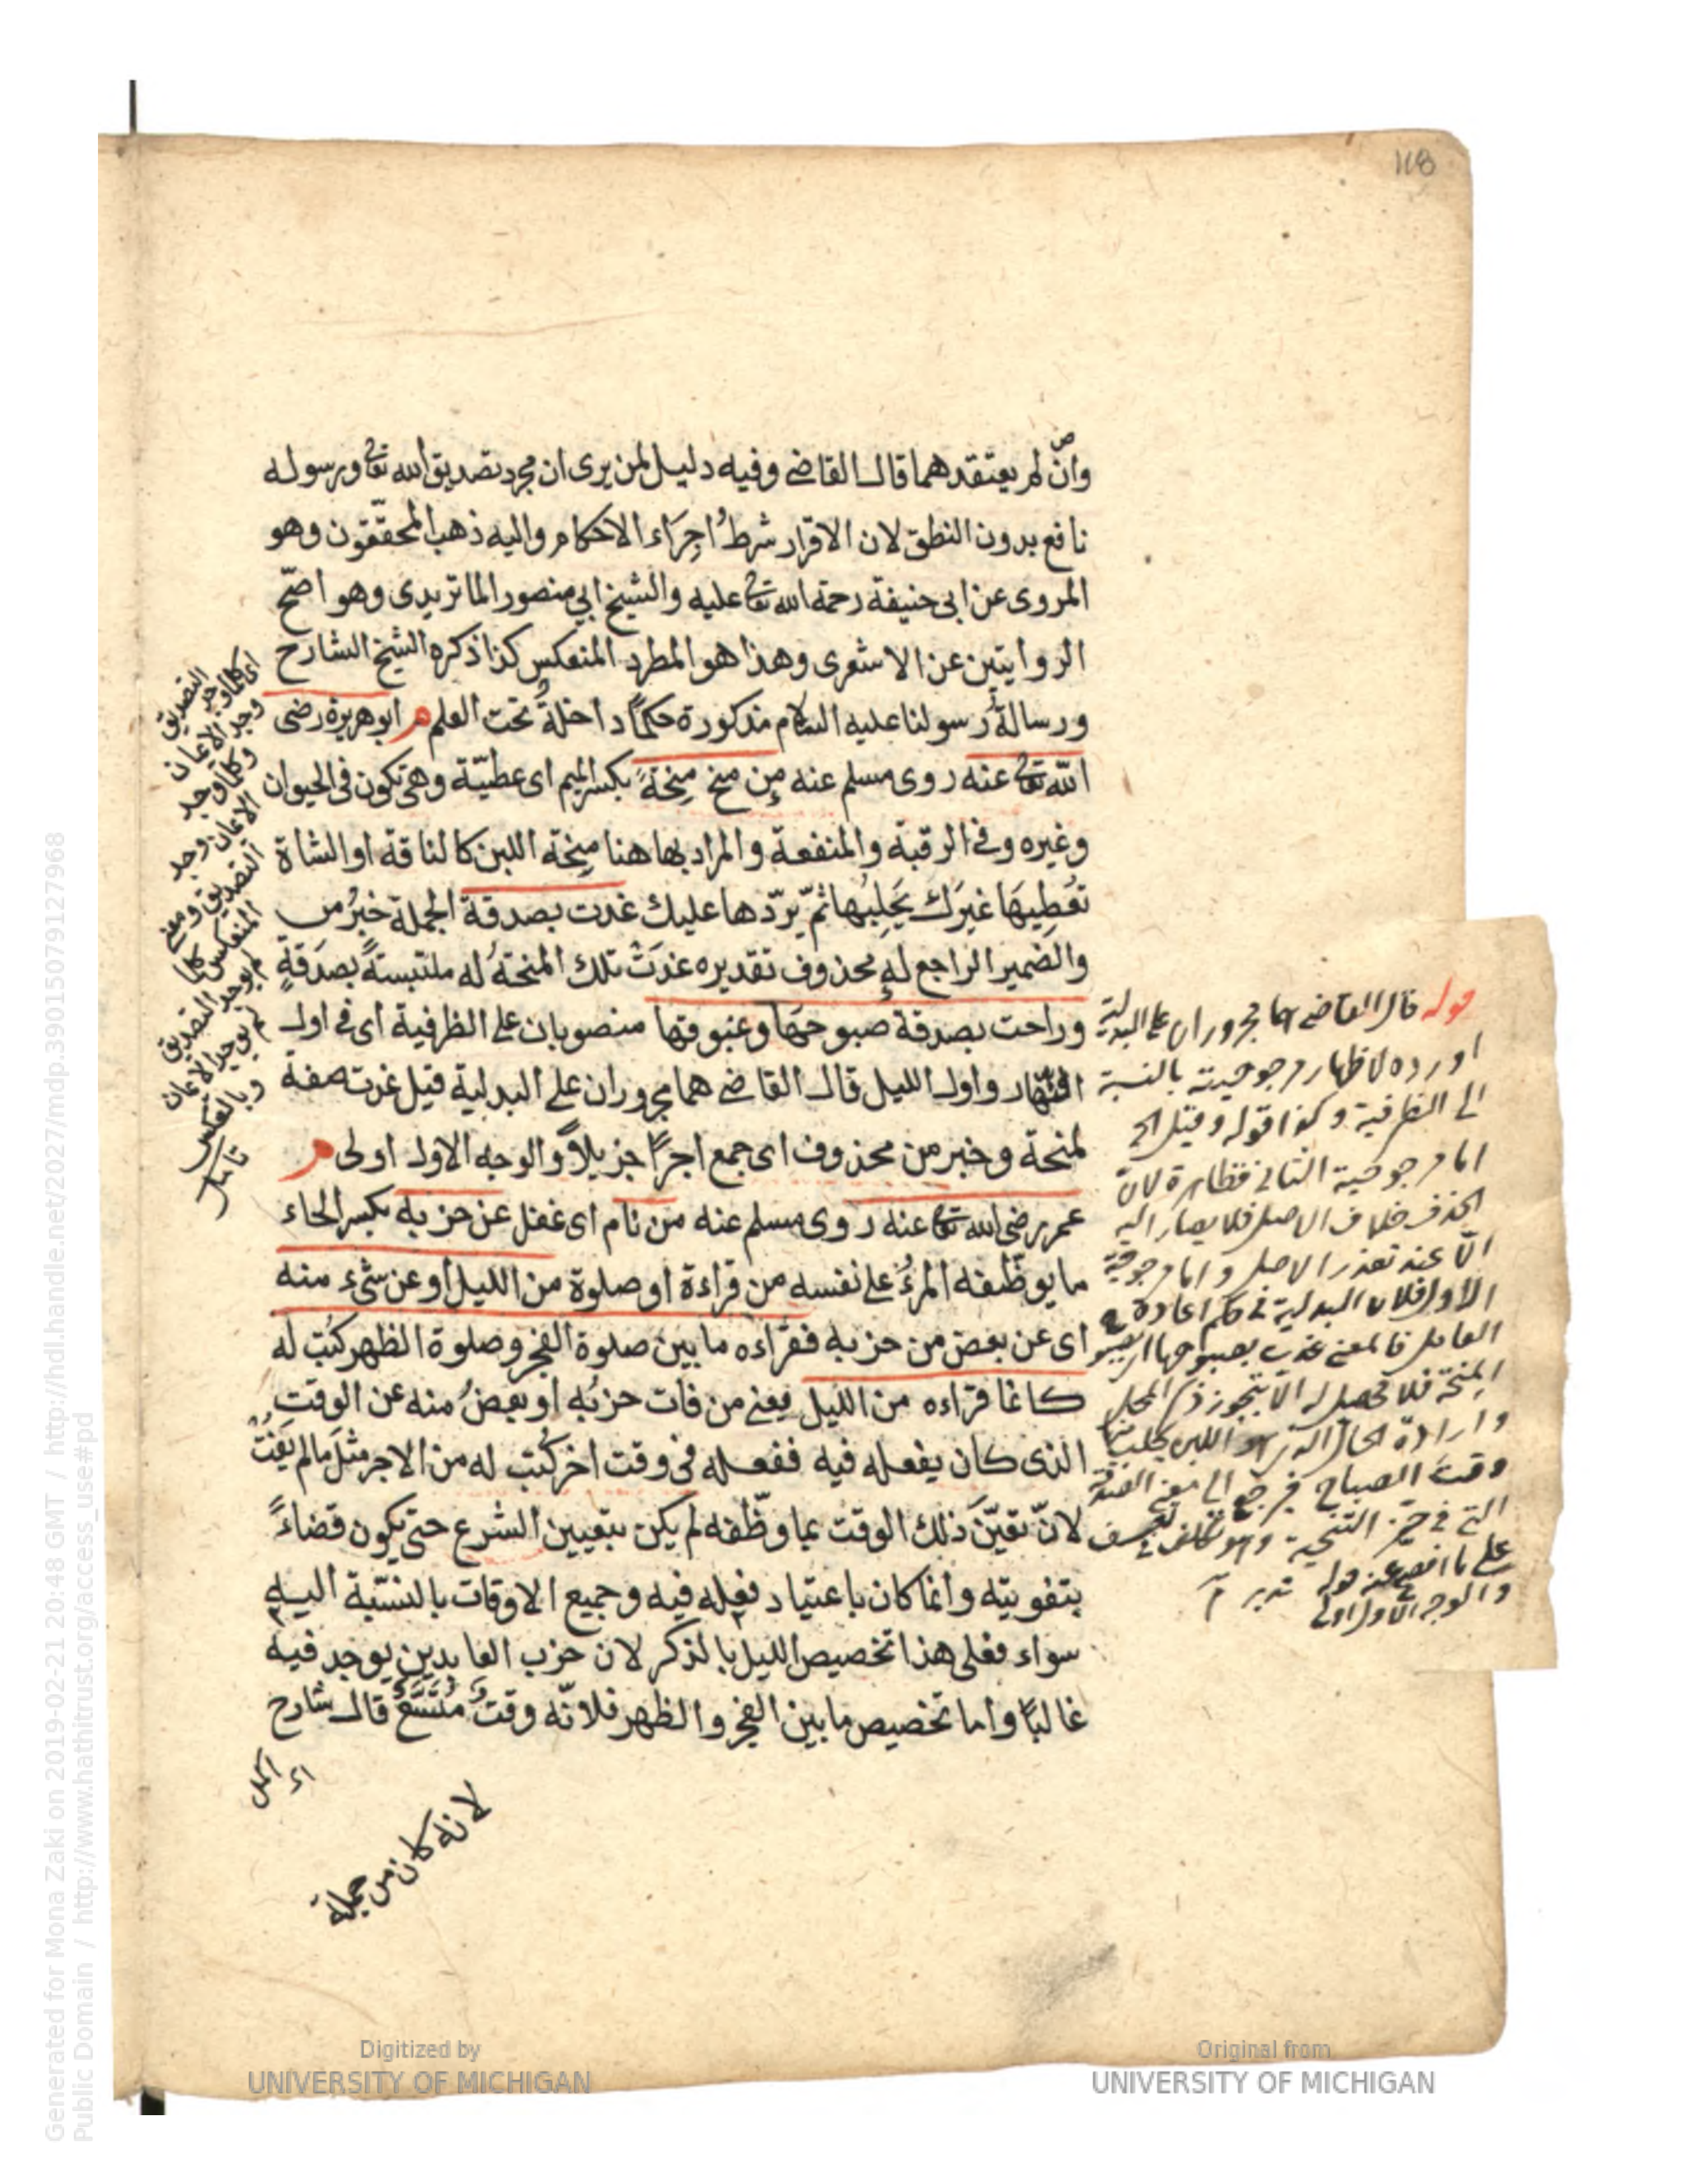 118
وان لم يعتقدهما قال القاضي وفيه دليل لمن يرى ان مجرد تصديق الله تعالى ورسوله
نافع بدون النطق لان الاقرار شرطُ اجراء الاحكام واليه ذهب المحققون وهو
المروى عن ابى حنيفة رحمة الله تعالى عليه والشيخ ابي منصور الماتريدى وهو اصحّ
الروايتين عن الاشعرى وهذا هو المطرد المنعكس كذا ذكره الشيخ الشارح
ورسالةُ رسولنا عليه السلام مذكورة حكمًا داخلةٌ تحت العلم م ابوهريرة رضى
الله تعالى عنه روى مسلم عنه من منح منحةً بكسر الميم اى عطيّة وهى تكون فى الحيوان
وغيره وفى الرقبة والمنفعة والمراد بها هنا منحة اللبن كالناقة او الشاة
تُعطِيهَا غيرَك يَحلِبُها ثمّ يردّها عليك غدت بصدقة الجملة خبرُ من
والضمير الراجع له محذوف تقديره غدَتْ تلك المنحةُ له ملتبسةً بصدَقةٍ
وراحت بصدقة صبوحها وغبوقها منصوبان على الظرفية اى فى اول
النهار واول الليل قال القاضى هما مجروران على البدلية قيل غدت صفة
لمنحة وخبر من محذوف اى جمع اجرًا جزيلاً والوجه الاول اولى م
عمر رضى الله تعالى عنه روى مسلم عنه من نام اى غفل عن حزبه بكسر الحاء
ما يوظّفه المرءُ على نفسه من قراءة او صلوة من الليل او عن شىء منه
اى عن بعض من حزبه فقراءه ما بين صلوة الفجر وصلوة الظهر كُتب له
كانما قراءه من الليل يعنى من فات حزبُه او بعضُ منه عن الوقت
الذى كان يفعله فيه ففعله فى وقت اخر كُتب له من الاجر مثلَ مالم يَفُتْ
لانّ تعيّنَ ذلك الوقت بما وظّفه لم يكن بتعيين الشرع حتى يكون قضاءً
بتفويته وانما كان باعتياد فعله فيه وجميع الاوقات بالنسبة اليه
سواء فعلى هذا تخصيص الليل بالذكر لان حزب العابدين يوجد فيه
غالبًا واما تخصيص ما بين الفجر والظهر فلانّه وقتٌ مُتَّسَعٌ قال شارح
اى كلما وجد التصديق
وجد الايمان
وكلما وجد
الايمان وجد
التصديق ومعنى
المنعكس كلما
لم يوجد التصديق
لم يوجد الايمان
وبالعكس
تأمل
قوله قال القاضى هما مجروران على البدلية
اورده لاظهار مرجوحيته بالنسبة
الى الظرفية وكذا قوله وقيل الخ
اما مرجوحية الثانى فظاهرة لانّ
الحذف خلاف الاصل فلا يصار اليه
الّا عند تعذر الاصل واما مرجوحية
الاول فلان البدلية فى حكم اعادة
العامل فالمعنى غدت بصبوحها
المنحة فلا محصل له الا بتجوز ذكر المحل
وارادة الحال
وقت الصباح فيرجع الى معنى
التى فى حيّز
على ما افصح عنه قوله تدبر
والوجه الاول اولى
اى اكمل
لانه كان من جملة
Generated for Mona Zaki on 2019-02-21 20:48 GMT / http://hdl.handle.net/2027/mdp.39015079127968
Public Domain / http://www.hathitrust.org/access_use#pd
Digitized by
UNIVERSITY OF MICHIGAN
Original from
UNIVERSITY OF MICHIGAN